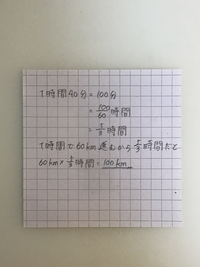 1時間40分=100分
=100/60時間
=5/3時間
1時間で60km進むから5/3時間だと
60km×5/3時間=100km